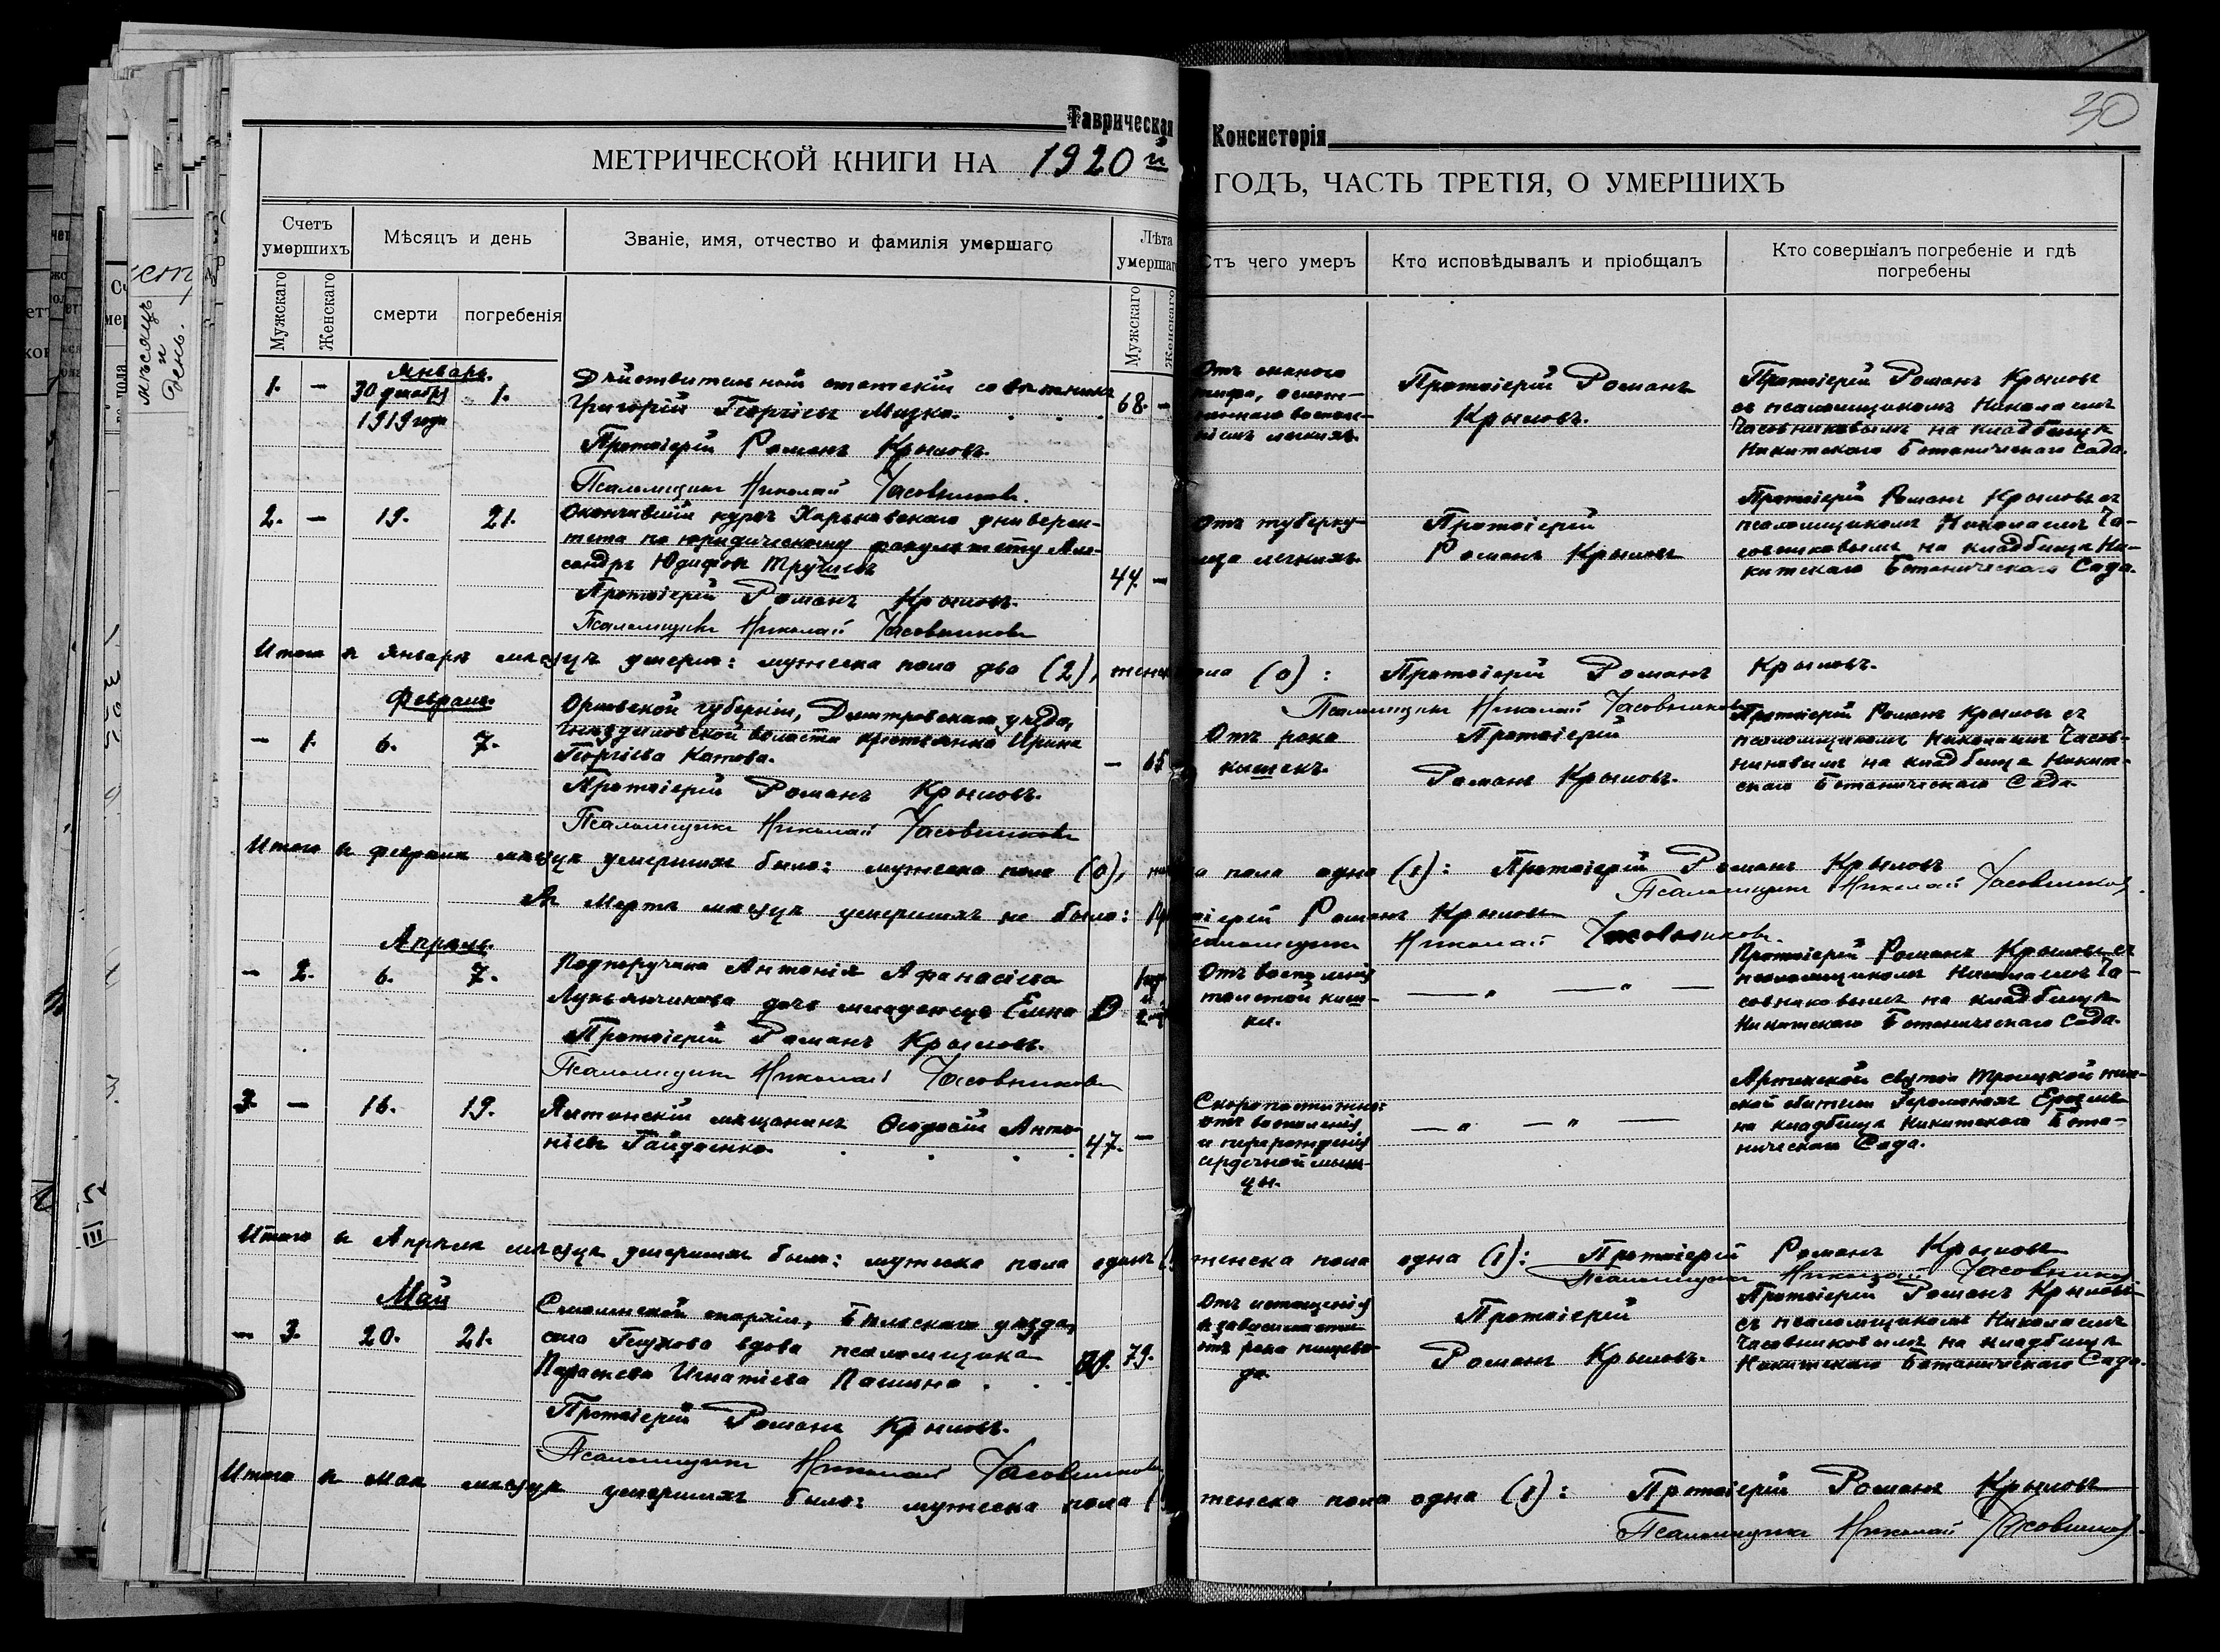 30
Таврическая Консисторія
МЕТРИЧЕСКОЙ КНИГИ НА 1920й ГОДЪ, ЧАСТЬ ТРЕТІЯ, О УМЕРШИХЪ
Счетъ умершихъ
Мужскаго
Женскаго
Мѣсяцъ и день
смерти
погребенія
Званіе, имя, отчество и фамилія умершаго
Лѣта умершаго
Мужскаго
Женскаго
Отъ чего умеръ
Кто исповѣдывалъ и пріобщалъ
Кто совершалъ погребеніе и гдѣ погребены
Январь.
1. — 30 декабря 1. Дѣйствительный статскій совѣтникъ 68. —
1919 года
Григорій Георгіевъ
Протоіерей Романъ Крыловъ.
Псаломщикъ Николай Часовниковъ.
Отъ
тифа,
легкихъ.
Протоіерей Романъ
Крыловъ.
Протоіерей Романъ Крыловъ
съ псаломщикомъ Николаемъ
Часовниковымъ на кладбищѣ
Никитскаго Ботаническаго Сада.
2. — 19. 21. Окончившій курсъ Харьковскаго универси-
тета по юридическому факультету Алек-
сандръ 44 —
Протоіерей Романъ Крыловъ.
Псаломщикъ Николай Часовниковъ
Отъ туберку-
леза легкихъ.
Протоіерей
Романъ Крыловъ
Протоіерей Романъ Крыловъ съ
псаломщикомъ Николаемъ Ча-
совниковымъ на кладбищѣ Ни-
китскаго Ботаническаго Сада.
Итого въ Январѣ мѣсяцѣ умерло: мужеска пола два (2), женска пола (0): Протоіерей Романъ Крыловъ.
Псаломщикъ Николай Часовниковъ
Февраль.
— 1. 6. 7. Орловской губерніи, Дмитровскаго уѣзда,
волости крестьянка Ирина
Георгіева Котова. — 65
Протоіерей Романъ Крыловъ.
Псаломщикъ Николай Часовниковъ
Отъ рака
кишекъ.
Протоіерей
Романъ Крыловъ.
Протоіерей Романъ Крыловъ съ
псаломщикомъ Николаемъ Часов-
никовымъ на кладбищѣ Никит-
скаго Ботаническаго Сада.
Итого въ февралѣ мѣсяцѣ умершихъ было: мужеска пола (0), женска пола одна (1): Протоіерей Романъ Крыловъ
Псаломщикъ Николай Часовниковъ.
Въ Мартѣ мѣсяцѣ умершихъ не было: Протоіерей Романъ Крыловъ
Псаломщикъ Николай Часовниковъ.
Апрѣль.
— 2. 6. 7. Подпоручика Антонія Афанасіева
Лукьянчикова дочь младенецъ Елена
Протоіерей Романъ Крыловъ.
Псаломщикъ Николай Часовниковъ
Отъ воспаленія
толстой киш-
ки.
— „ — „ —
Протоіерей Романъ Крыловъ съ
псаломщикомъ Николаемъ Ча-
совниковымъ на кладбищѣ
Никитскаго Ботаническаго Сада.
3. — 16. 19. Ялтинскій мѣщанинъ Ѳеодосій Анто-
ніевъ Гайдаенко. 47. —
Скоропостижно:
отъ воспаленія
и перерожденія
сердечной мыш-
цы.
— „ — „ —
Троицкой
обители Іеромонахъ
на кладбищѣ Никитскаго Бота-
ническаго Сада.
Итого въ Апрѣлѣ мѣсяцѣ умершихъ было: мужеска пола одинъ (1) женска пола одна (1): Протоіерей Романъ Крыловъ
Псаломщикъ Николай Часовниковъ
Май
— 3. 20. 21. Смоленской епархіи, Бѣльскаго уѣзда,
села Глухова вдова псаломщика
Параскева Игнатіева Пашина. 79.
Протоіерей Романъ Крыловъ.
Псаломщикъ Николай Часовниковъ
Отъ истощенія
въ зависимости
отъ рака пищево-
да.
Протоіерей
Романъ Крыловъ.
Протоіерей Романъ Крыловъ
съ псаломщикомъ Николаемъ
Часовниковымъ на кладбищѣ
Никитскаго Ботаническаго Сада.
Итого въ Маѣ мѣсяцѣ умершихъ было: мужеска пола женска пола одна (1): Протоіерей Романъ Крыловъ
Псаломщикъ Николай Часовниковъ.